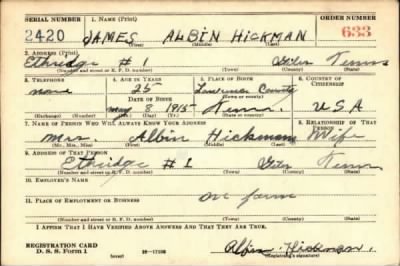 SERIAL NUMBER 1. NAME (Print) ORDER NUMBER
2420 JAMES ALBIN HICKMAN 633
(First) (Middle) (Last)
2. ADDRESS (Print)
Ethridge #1 Giles Tenns
(Number and street or R. F. D. number) (Town) (County) (State)
3. TELEPHONE 4. AGE IN YEARS 5. PLACE OF BIRTH 6. COUNTRY OF CITIZENSHIP
none 25 Lawrence County
DATE OF BIRTH (Town or county)
May 8 1915 Tenn. USA
(Exchange) (Number) (Mo.) (Day) (Yr.) (State or country)
7. NAME OF PERSON WHO WILL ALWAYS KNOW YOUR ADDRESS 8. RELATIONSHIP OF THAT PERSON
Mrs. Albin Hickman Wife
(Mr., Mrs., Miss) (First) (Middle) (Last)
9. ADDRESS OF THAT PERSON
Ethridge #1 Giles Tenn
(Number and street or R. F. D. number) (Town) (County) (State)
10. EMPLOYER'S NAME
on farm
11. PLACE OF EMPLOYMENT OR BUSINESS
(Number and street or R. F. D. number) (Town) (County) (State)
I AFFIRM THAT I HAVE VERIFIED ABOVE ANSWERS AND THAT THEY ARE TRUE.
REGISTRATION CARD
D. S. S. Form 1 (over) Albin Hickman.
(Registrant's signature)